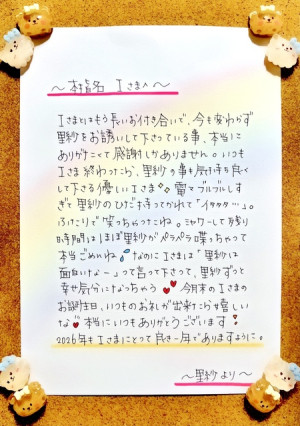 ～本指名 Iさまへ～
Iさまとはもう長いお付き合いで、今も変わらず
里紗をお誘いして下さっている事、本当に
ありがたくて感謝しかありません。いつも
Iさま終わったら、里紗の事も気持ち良く
して下さる優しいIさま
電マでブルブルしす
ぎて里紗のひだ持ってかれて「イタタタ…」。
ふたりで笑っちゃったね。シャワーして残り
時間はほぼ里紗がペラペラ喋っちゃって
本当ごめんね なのにIさまは「里紗は
面白いな～」って言って下さって、里紗ずっと
幸せ気分になっちゃう 今月末のIさまの
お誕生日、いつものお礼が出来たら嬉しい
な 本当にいつもありがとうございます！
2026年もIさまにとって良き一年でありますように。
～里紗より～